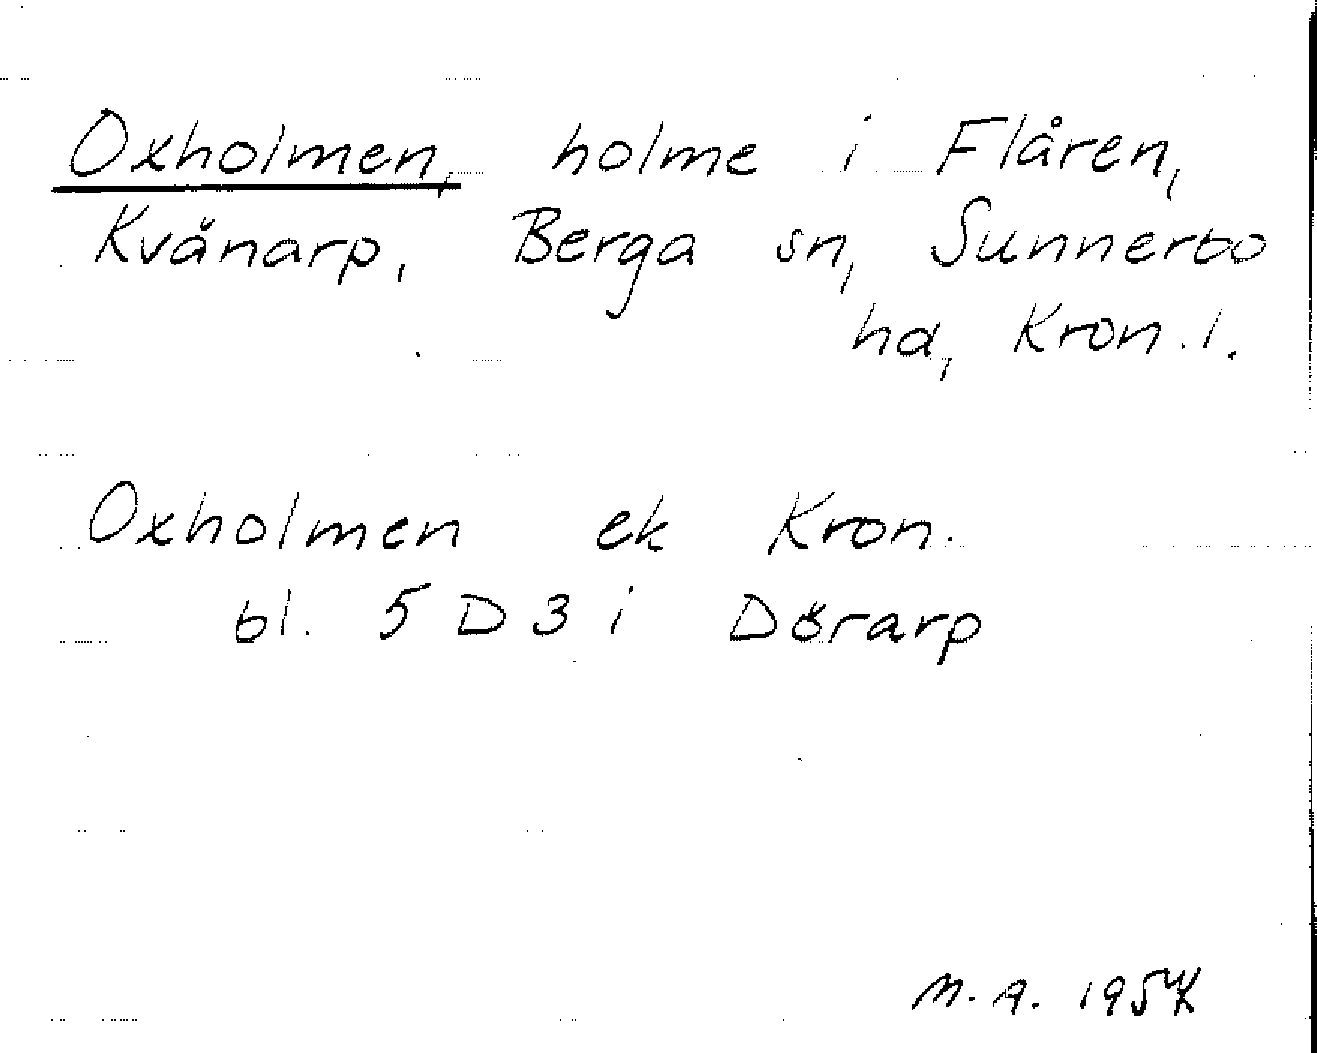 Oxholmen, holme i Flåren,
Kvänarp, Berga sn, Sunnerbo
hd, Kron. l.
Oxholmen ek Kron.
bl. 5 D 3 i Dörarp
M. A. 1954